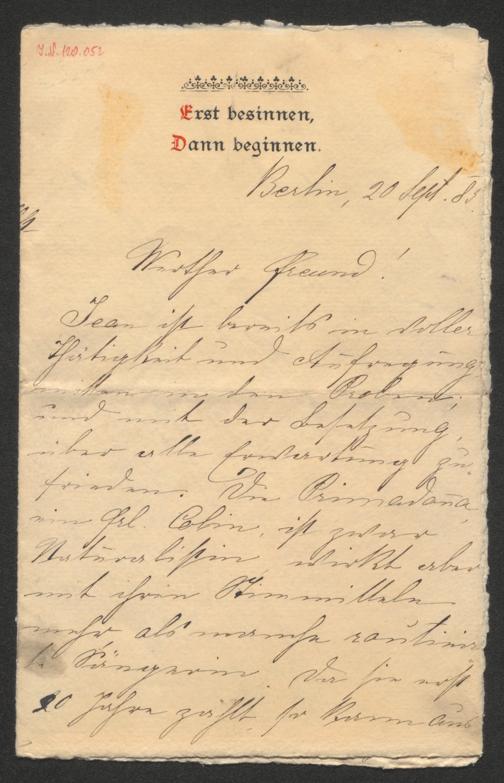 I.N. 120.052
Erst besinnen,
Dann beginnen.
Berlin, 20 Sept. 83.
Werther Freund!
Jean ist bereits in voller
Thätigkeit und Aufregung
mitten in den Proben,
und mit der Besetzung,
über alle Erwartung zu-
frieden. Die Primadona,
ein Frl. Colin, ist zwar
Naturalistin wirkt aber
mit ihren Stimmitteln
mehr als manche routinir
te Sängerin. Da sie erst
20 Jahre zählt, so kann aus